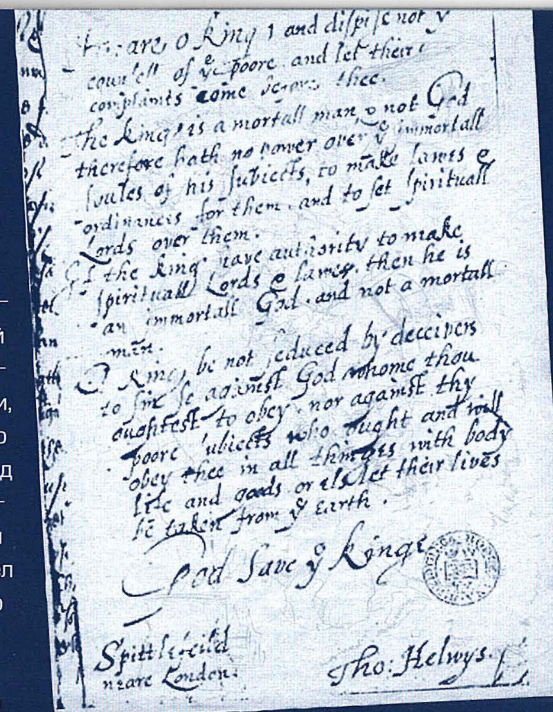 Heare O King, and dispise not yͤ
counsell of yͤ poore, and let their
complaints come before thee.
The King is a mortall man, & not God
therefore hath no power over yͤ immortall
soules of his subiects, to make lawes &
ordinances for them, and to set spirituall
Lords over them.
If the King have authority to make
spirituall Lords & lawes, then he is
an immortall God, and not a mortall
man.
O King, be not seduced by deceivers
to sin se against God whome thou
oughtest to obey, nor against thy
poore subiects who ought and will
obey thee in all thinges with body
life and goods or els let their lives
be taken from yͤ Earth.
God Save yͤ Kinge
Spittlefeild
neare London.
Tho: Helwys.
й
и,
о
д
л
о